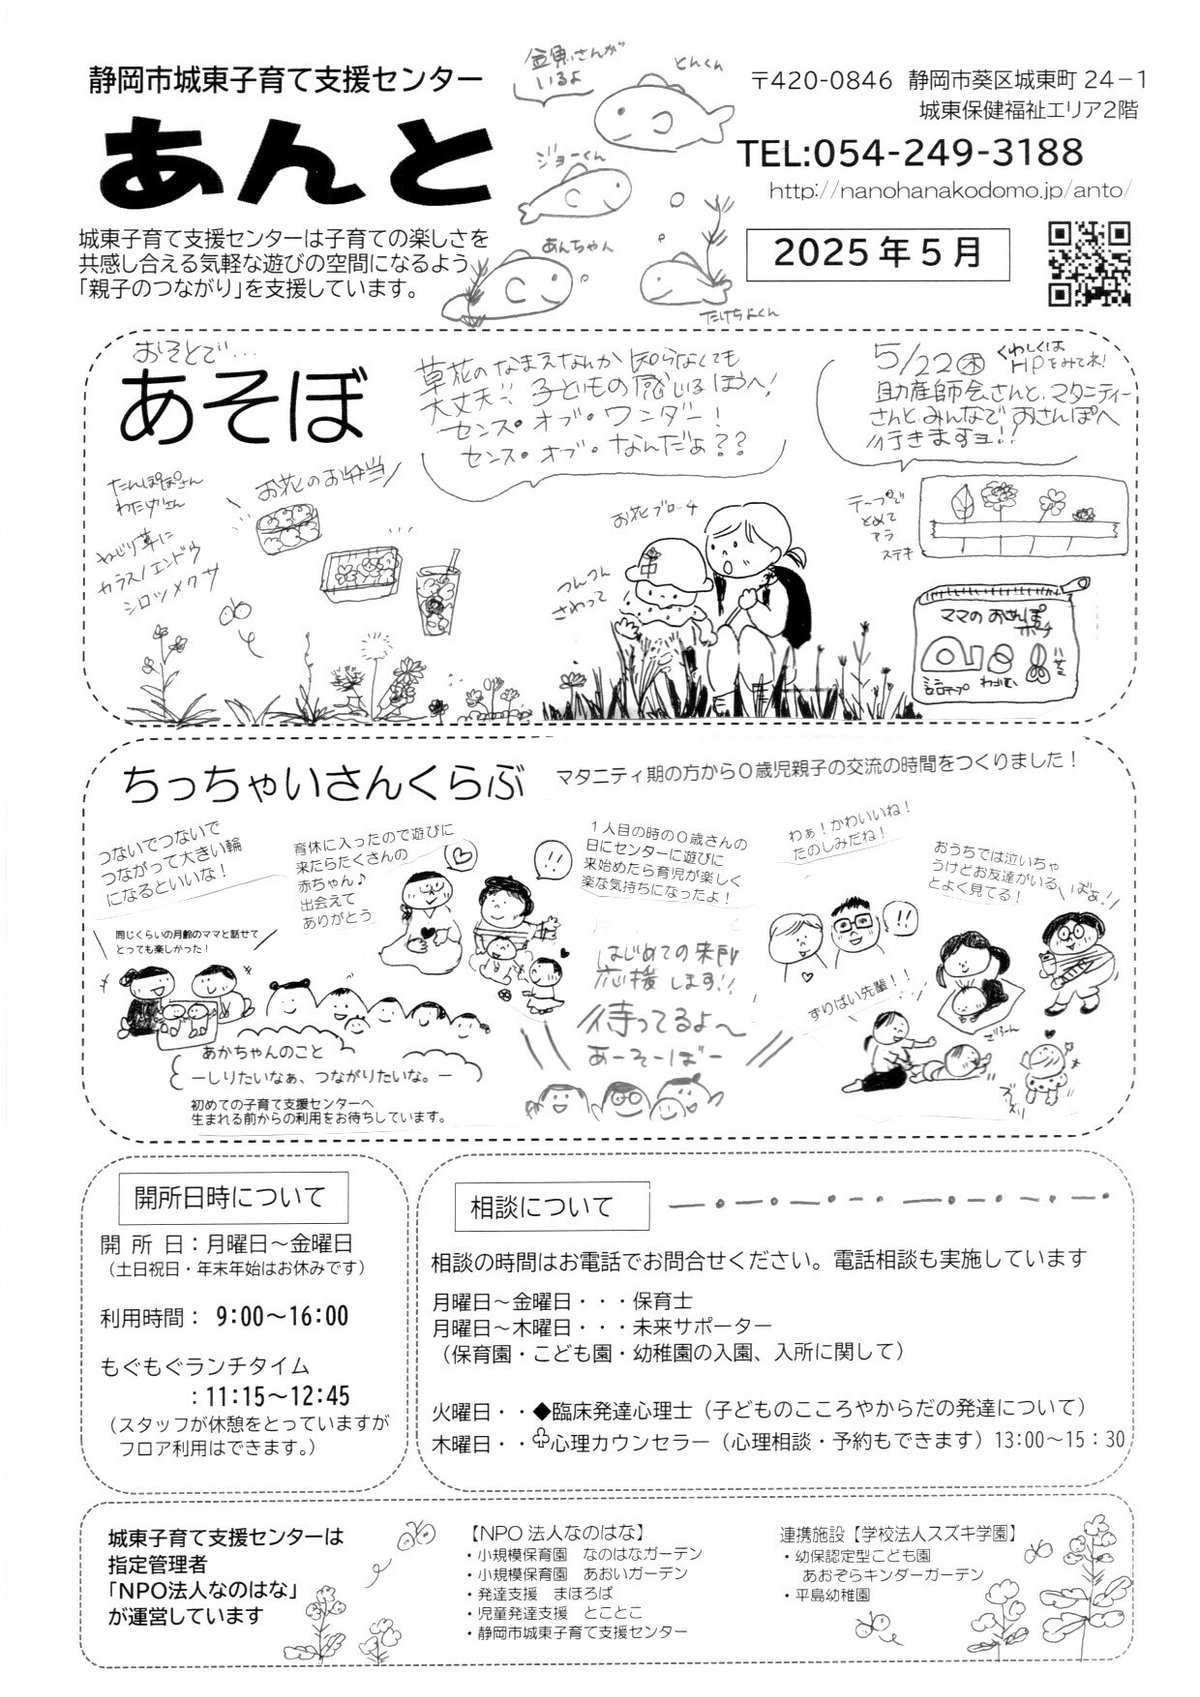 静岡市城東子育て支援センター
あんと
城東子育て支援センターは子育ての楽しさを
共感し合える気軽な遊びの空間になるよう
「親子のつながり」を支援しています。
金魚さんが
いるよ
とんくん
ジョーくん
あんちゃん
たけちよくん
〒420-0846 静岡市葵区城東町 24－1
城東保健福祉エリア2階
TEL:054-249-3188
http://nanohanakodomo.jp/anto/
2025年5月
おそとで…
あそぼ
草花のなまえなんか知らなくても
大丈夫!! 子どもの感じるほうへ!
センス・オブ・ワンダー!
センス・オブ・なんだぁ??
5/22㊍ くわしくは
HPをみてネ!
助産師会さんと、マタニティー
さんと、みんなで、おさんぽへ
行きますヨ!!
たんぽぽさん
わたげさん
ねじり草に
カラスノエンドウ
シロツメクサ
お花のお弁当
お花ブローチ
つんつん
さわって
テープで
とめて
アラ
ステキ
ママの おさんぽ
ポーチ
セロテープ
わごむ
ハサミ
ちっちゃいさんくらぶ
マタニティ期の方から０歳児親子の交流の時間をつくりました！
つないでつないで
つながって大きい輪
になるといいな！
育休に入ったので遊びに
来たらたくさんの
赤ちゃん♪
出会えて
ありがとう
１人目の時の０歳さんの
日にセンターに遊びに
来始めたら育児が楽しく
楽な気持ちになったよ！
わぁ！かわいいね！
たのしみだね！
おうちでは泣いちゃ
うけどお友達がいる
とよく見てる！
いばぁ!
同じくらいの月齢のママと話せて
とっても楽しかった！
!!
!!
はじめての来所
応援します!!
待ってるよ～
あーそーぼー
ずりばい先輩！！
ごろーん
ズリズリ
あかちゃんのこと
ーしりたいなぁ、つながりたいな。ー
初めての子育て支援センターへ
生まれる前からの利用をお待ちしています。
開所日時について
開 所 日：月曜日～金曜日
（土日祝日・年末年始はお休みです）
利用時間： 9:00～16:00
もぐもぐランチタイム
：11:15～12:45
（スタッフが休憩をとっていますが
フロア利用はできます。）
相談について
相談の時間はお電話でお問合せください。電話相談も実施しています
月曜日～金曜日・・・保育士
月曜日～木曜日・・・未来サポーター
（保育園・こども園・幼稚園の入園、入所に関して）
火曜日・・◆臨床発達心理士（子どものこころやからだの発達について）
木曜日・・♧心理カウンセラー（心理相談・予約もできます）13:00～15：30
城東子育て支援センターは
指定管理者
「NPO法人なのはな」
が運営しています
【NPO 法人なのはな】
・小規模保育園 なのはなガーデン
・小規模保育園 あおいガーデン
・発達支援 まほろば
・児童発達支援 とことこ
・静岡市城東子育て支援センター
連携施設【学校法人スズキ学園】
・幼保認定型こども園
あおぞらキンダーガーデン
・平島幼稚園